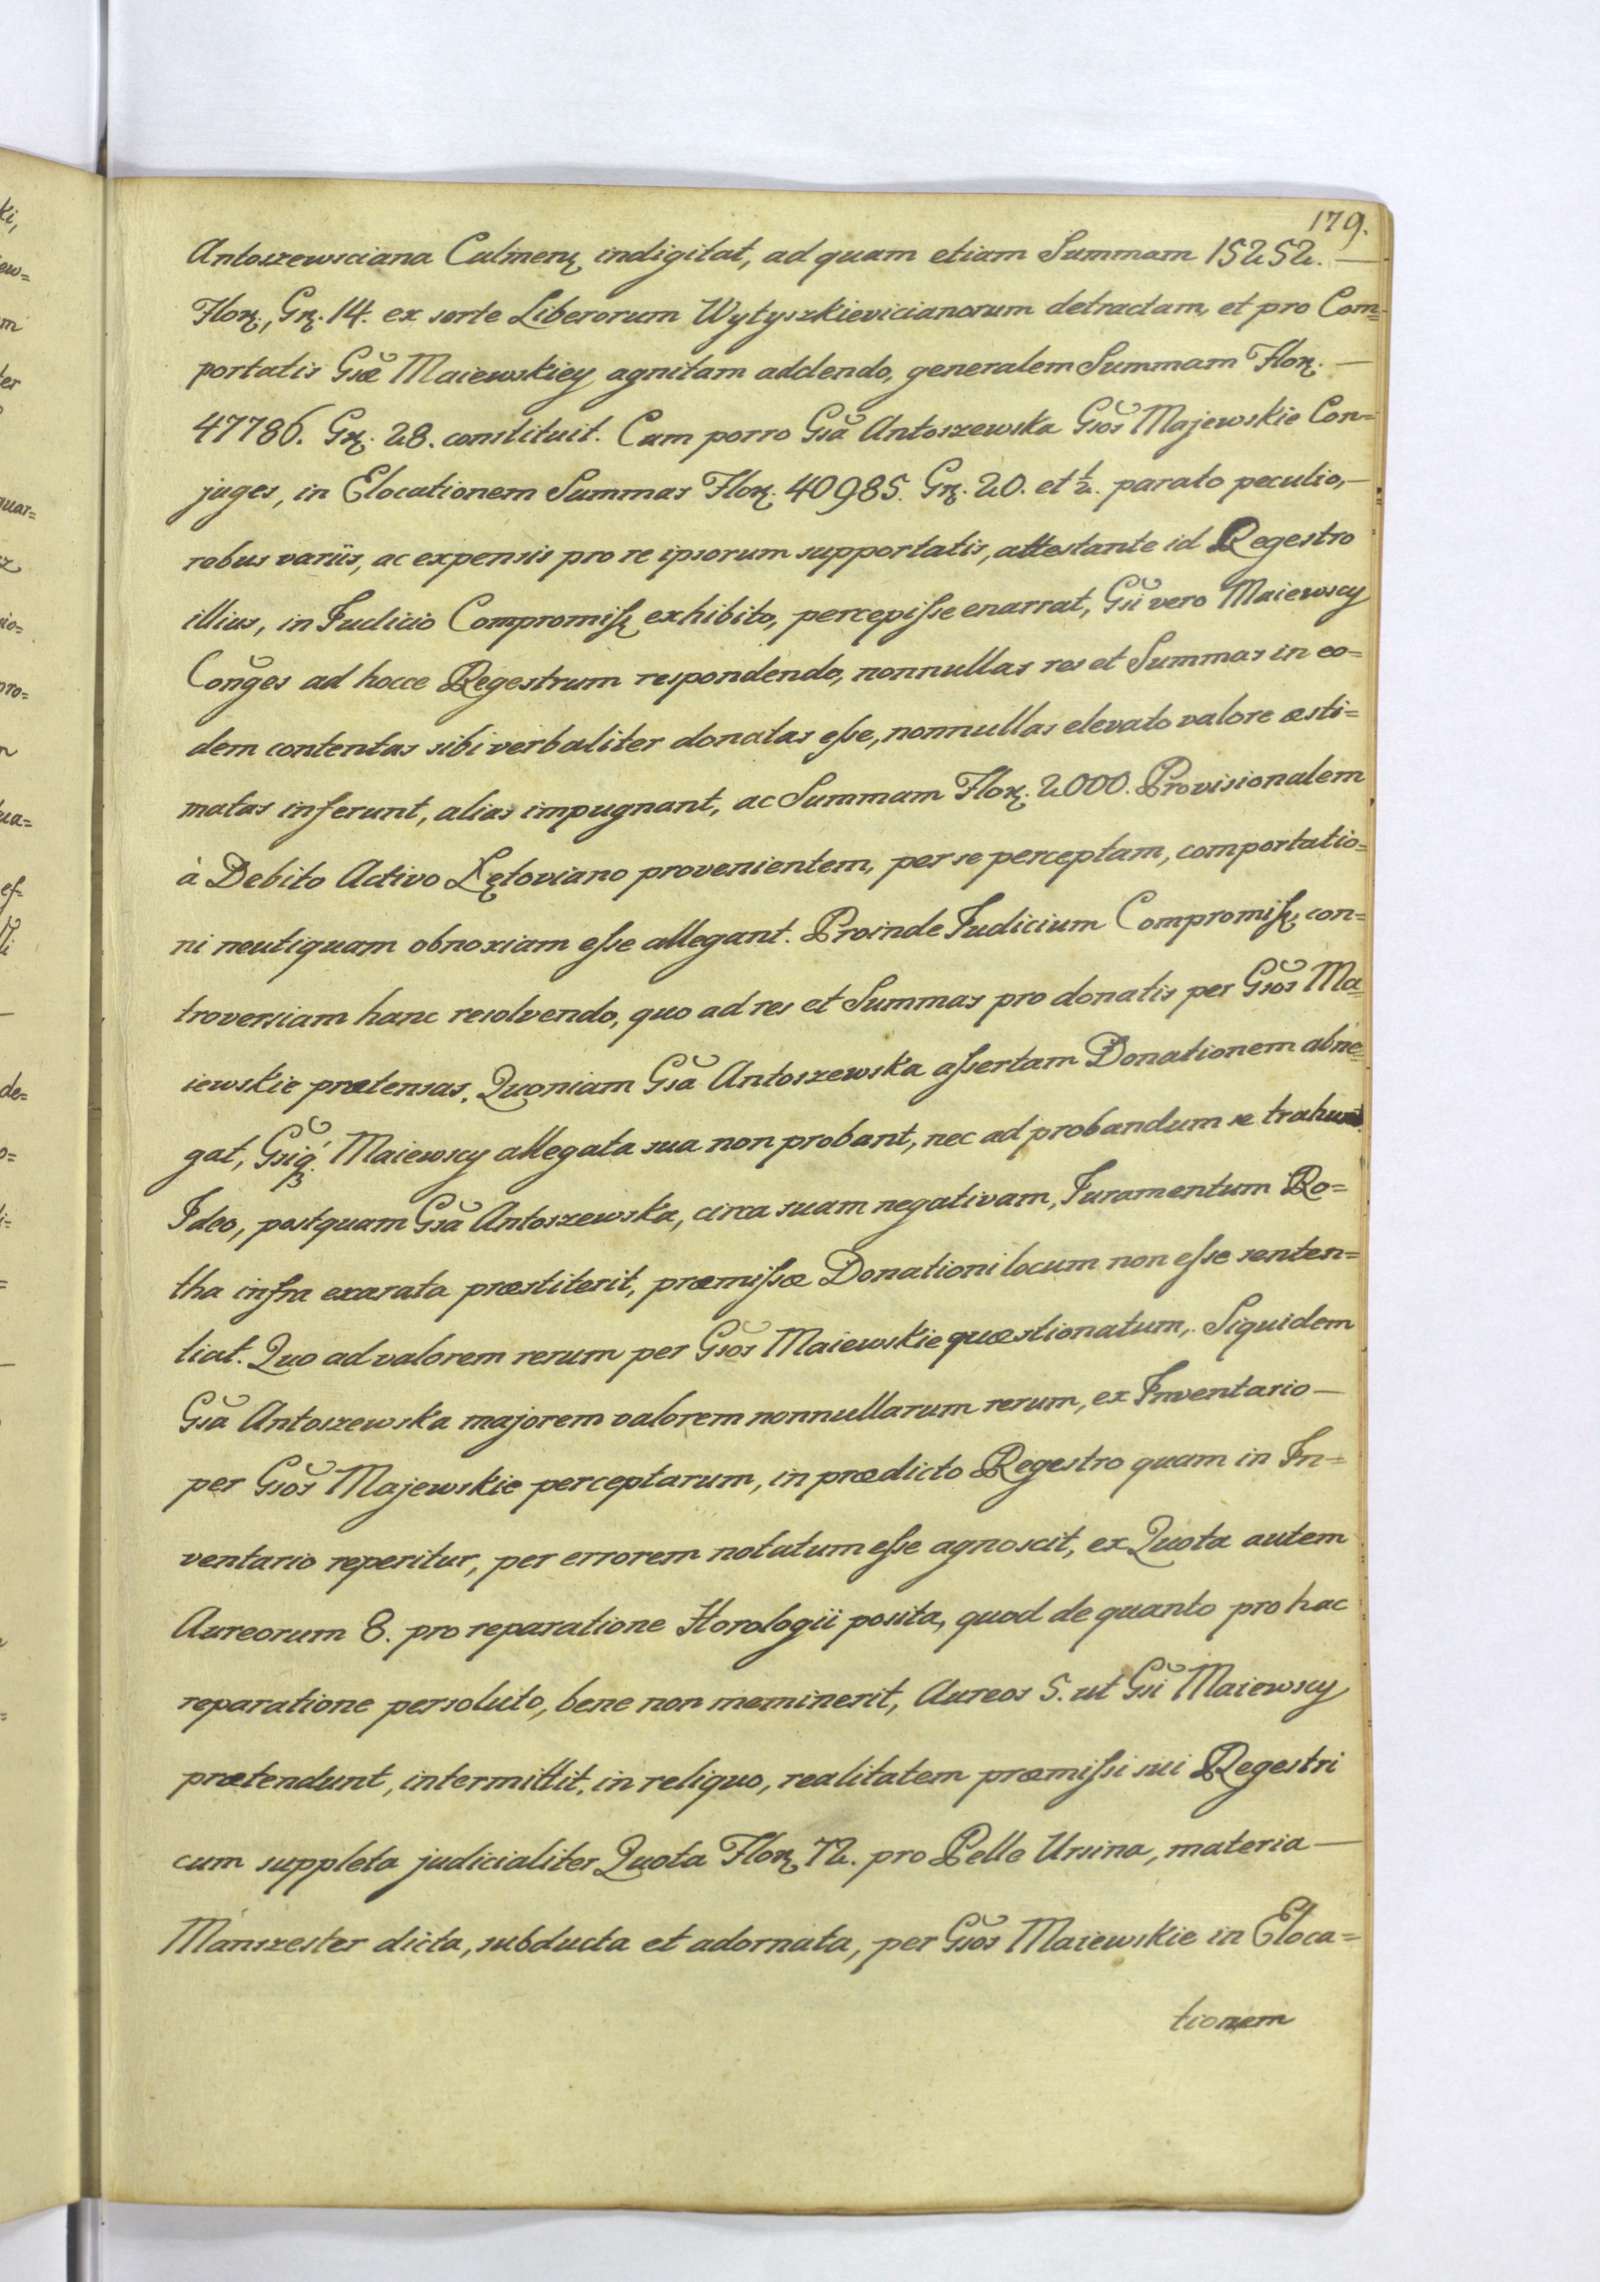 179.
Antoszewsciana Calmenꝝ indigitat, ad quam etiam Summam 15252. —
Floꝝ., Gꝝ. 14. ex sorte Liberorum Wytyszkievicianorum detractam, et pro Com=
portatis Gsæ̆ Maiewskiey agnitam addendo, generalem Summam Floꝝ. —
47786. Gꝝ. 28. constituit. Cum porro Gsă Antoszewska Gsŏs Majewskie Con=
juges, in Elocationem Summas Floꝝ. 40985. Gꝝ. 20. et ½. parato peculio, —
rebus variis, ac expensis pro re ipsorum supportatis, attestante id Regestro
illius, in Judicio Compromiſſ exhibito, percepiſse enarrat, Gsĭ vero Maiewscy
Conğes ad hocce Regestrum respondendo, nonnullas res et Summas in eo=
dem contentas sibi verbaliter donatas eſse, nonnullas elevato valore æsti=
matas inferunt, alias impugnant, ac Summam Floꝝ. 2000. Provisionalem
à Debito Activo Lętoviano provenientem, per se perceptam, comportatio=
ni neutiquam obnoxiam eſse allegant. Proinde Judicium Compromiſſ con=
troversiam hanc resolvendo, quo ad res et Summas pro donatis per Gsŏs Ma=
iewskie prætensas, Quoniam Gsă Antoszewska aſsertam Donationem abne=
gat, Gsĭq́ꝫ Maiewscy allegata sua non probant, nec ad probandum se trahunt
Ideo, postquam Gsă Antoszewska, circa suam negativam, Juramentum Ro=
tha infra exarata præstiterit, præmiſsæ Donationi locum non eſse senten=
tiat. Quo ad valorem rerum per Gsŏs Maiewskie quæstionatum, Siquidem
Gsă Antoszewska majorem valorem nonnullarum rerum, ex Inventario —
per Gsŏs Majewskie perceptarum, in prædicto Regestro quam in In=
ventario reperitur, per errorem notatum eſse agnoscit, ex Quota autem
Aureorum 8. pro reparatione Horologii posita, quod de quanto pro hac
reparatione persoluto, bene non meminerit, Aureos 5. ut Gsĭ Maiewscy
prætendunt, intermittit, in reliquo, realitatem præmiſsi sui Regestri
cum suppleta judicialiter Quota Floꝝ 72. pro Pelle Ursina, materia —
Manszester dicta, subducta et adornata, per Gsŏs Maiewskie in Eloca=
tionem